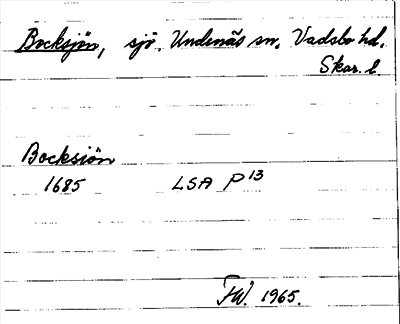 Bocksjön, sjö, Undenäs sn. Vadsbo hd.
Skar. l.
Bocksiön
1685 LSA P 13
FW. 1965.